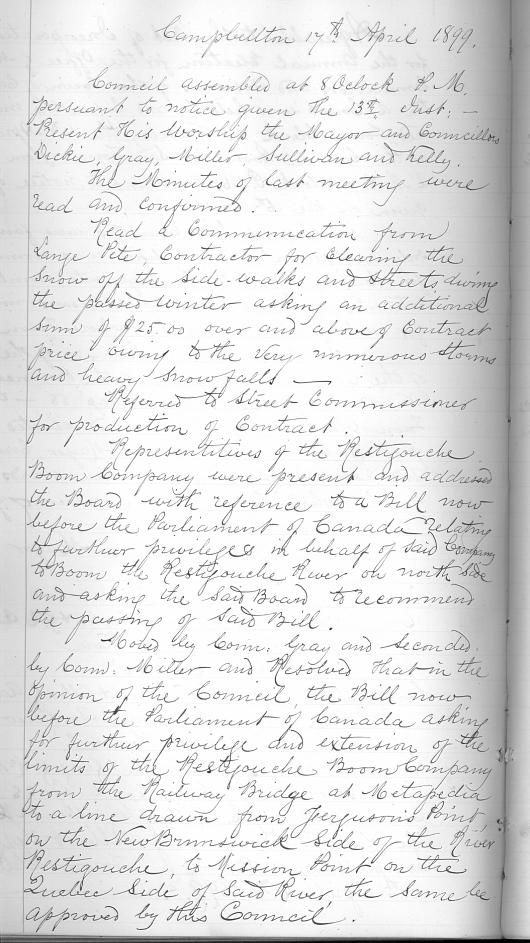 Campbellton 17th April 1899.
Council assembled at 8 Oclock P.M.
persuant to notice given the 13th Inst: —
Present His Worship the Mayor and Councillors
Dickie, Gray, Miller, Sullivan and Kelly.
The Minutes of last meeting were
read and confirmed.
Read a Communication from
Lange Pete, Contractor for Clearing the
Snow off the Side-walks and Streets, during
the passed winter asking an additional
sum of $25.00 over and above Contract
price owing to the very numerous Storms
and heavy snow falls —
Referred to Street Commissioner
for production of Contract.
Representitives of the Restigouche
Boom Company were present and addressed
the Board with reference to a Bill now
before the Parliament of Canada relating
to further privileges in behalf of said Company
to Boom the Restigouche River on north side
and asking the said Board to recommend
the passing of said Bill.
Moved by Coun: Gray and Seconded
by Coun: Miller and Resolved that in the
opinion of the Council the Bill now
before the Parliament of Canada asking
for further privilege and extension of the
limits of the Restigouche Boom Company
from the Railway Bridge at Metapedia
to a line drawn from Ferguson's Point
on the New Brunswick Side of the River
Restigouche, to Mission Point on the
Quebec Side of Said River, the Same be
approved by this Council.